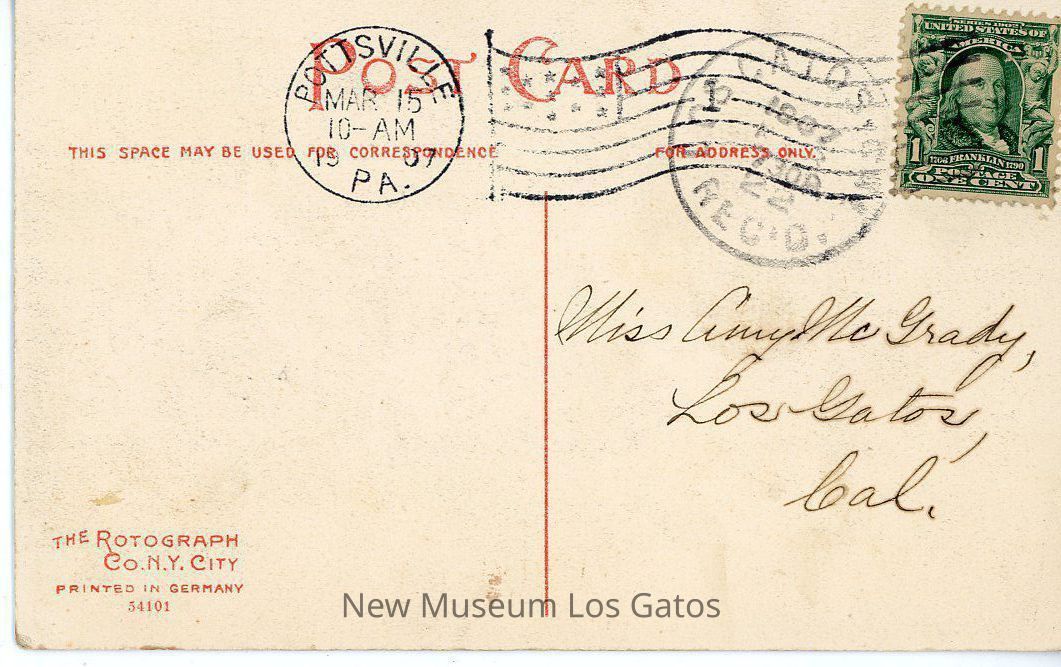 POST CARD
POTTSVILLE
MAR 15
10-AM
19 07
PA.
1
1907
REC'D.
SERIES 1902
UNITED STATES OF
AMERICA
1 1706 FRANKLIN 1790 1
POSTAGE
ONE CENT
THIS SPACE MAY BE USED FOR CORRESPONDENCE
FOR ADDRESS ONLY.
Miss Amy McGrady,
Los Gatos,
Cal.
THE ROTOGRAPH
CO. N.Y. CITY
PRINTED IN GERMANY
54101
New Museum Los Gatos